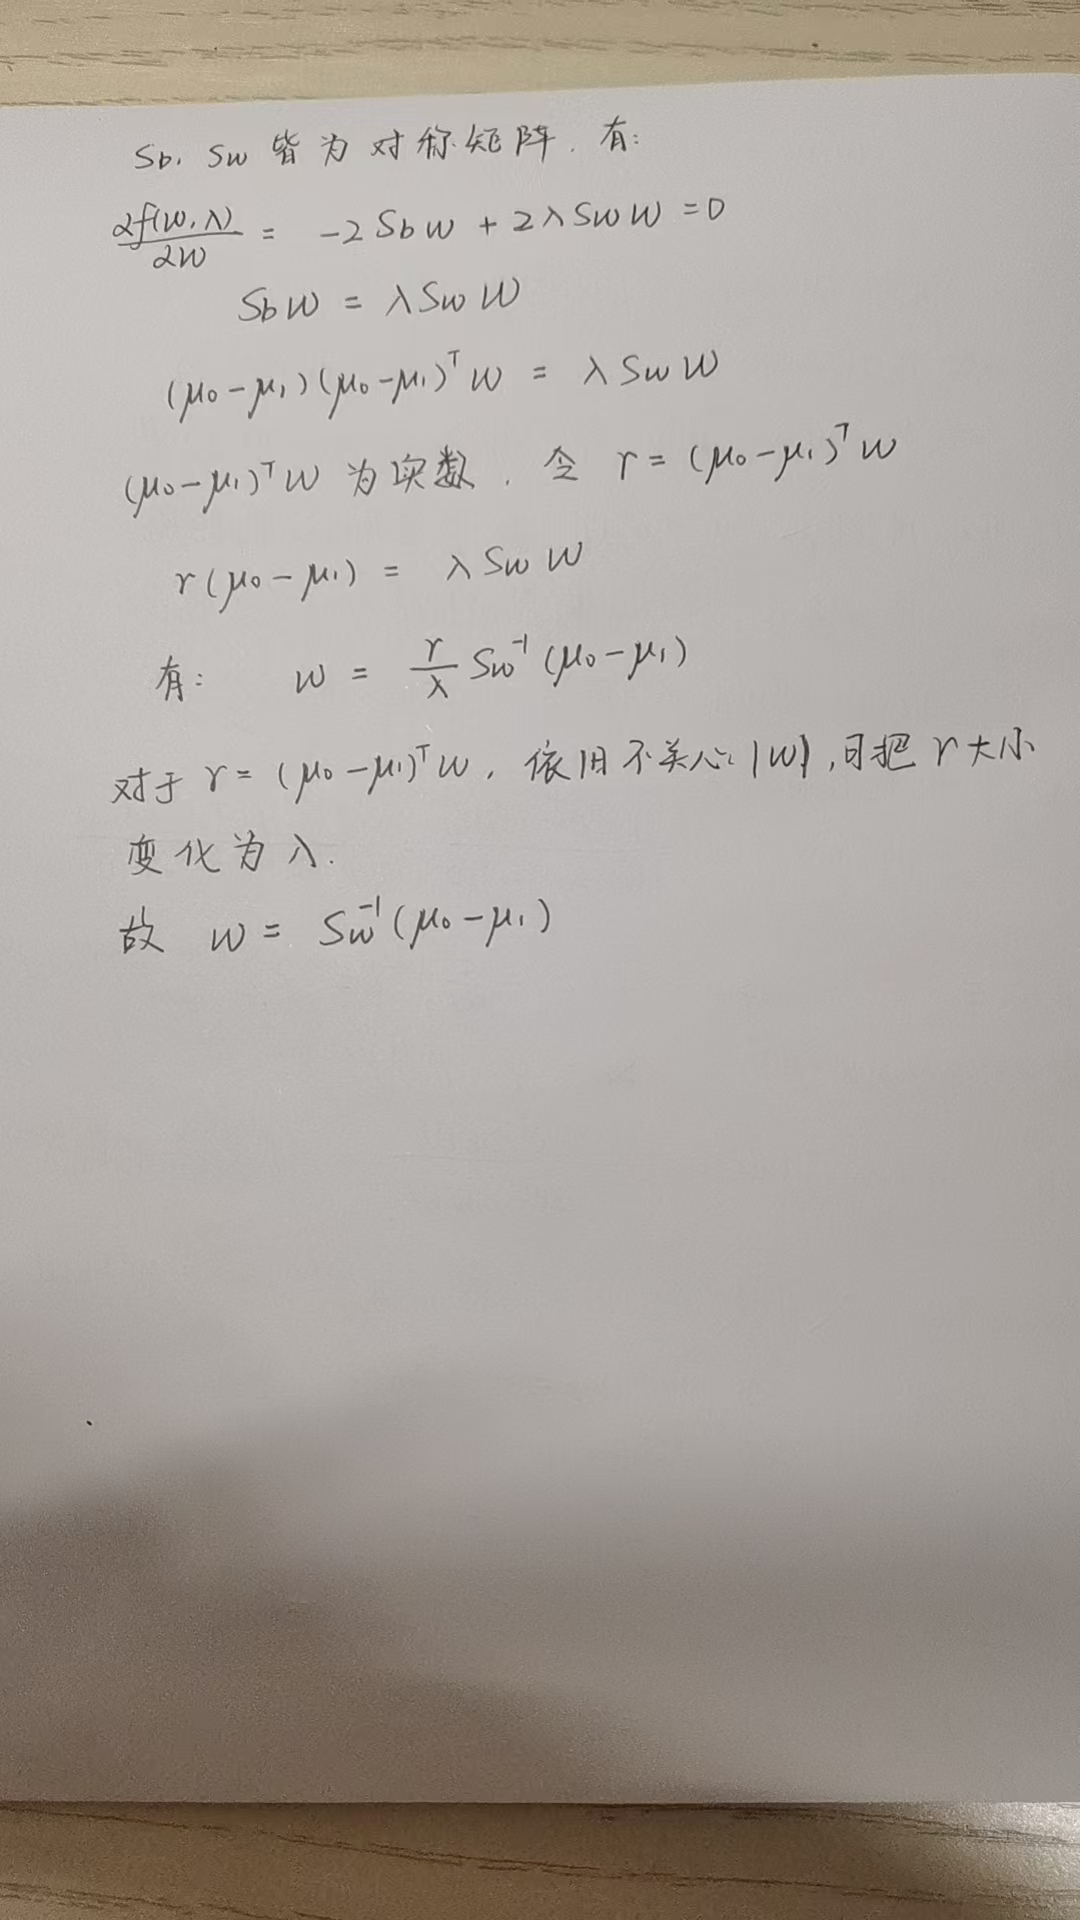 Sb, Sw 皆为对称矩阵. 有:
∂f(w,λ)/∂w = -2 Sb w + 2λ Sw w = 0
Sb w = λ Sw w
(μ₀-μ₁)(μ₀-μ₁)ᵀ w = λ Sw w
(μ₀-μ₁)ᵀ w 为实数. 令 r = (μ₀-μ₁)ᵀ w
r(μ₀-μ₁) = λ Sw w
有: w = r/λ Sw⁻¹ (μ₀-μ₁)
对于 r = (μ₀-μ₁)ᵀ w, 依旧不关心 |w|, 把 r 大小
变化为 λ.
故 w = Sw⁻¹ (μ₀-μ₁)